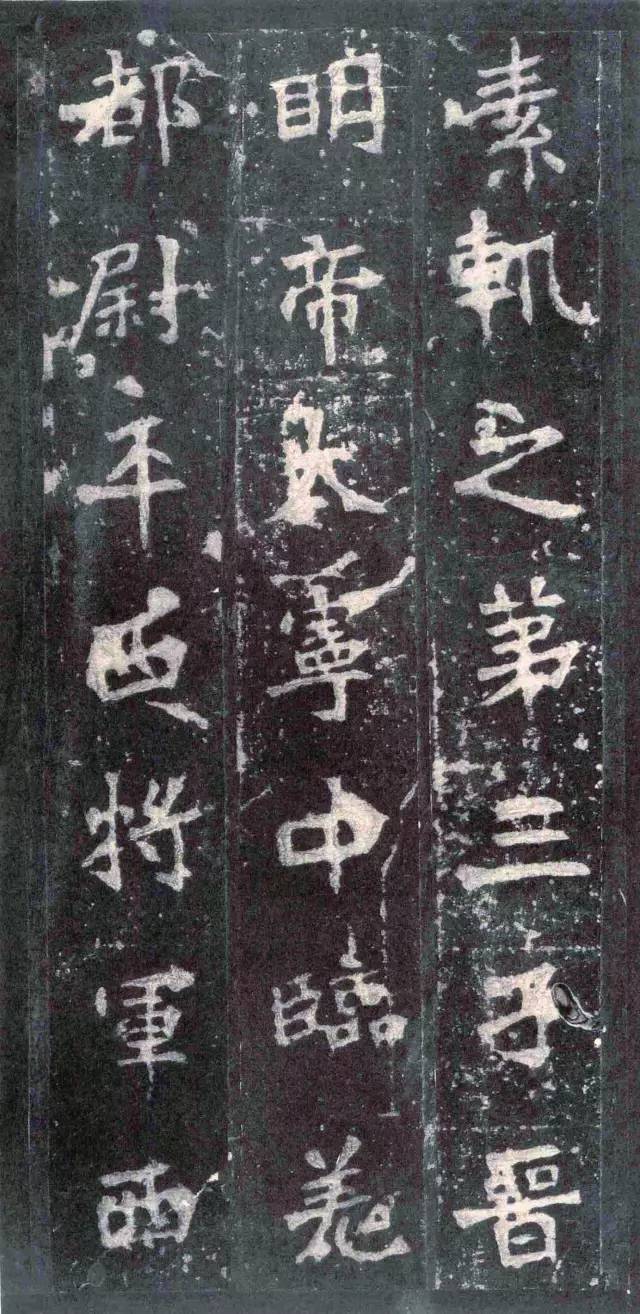 素軌之第三子晉
明帝太寧中臨羌
都尉平西將軍西